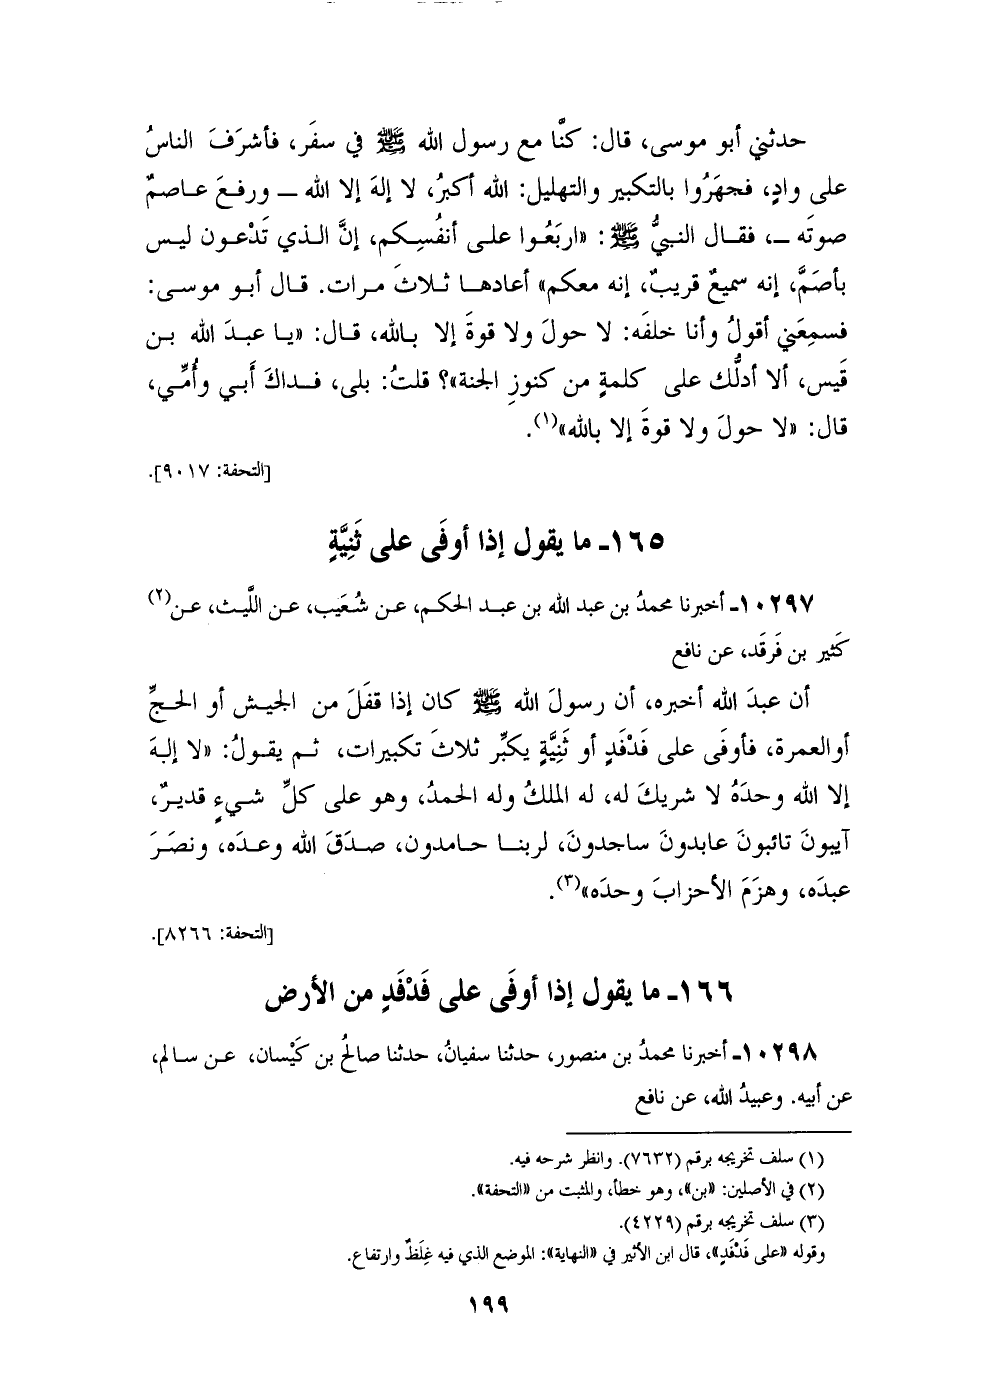 حدثني أبو موسى، قال: كنَّا مع رسول الله ﷺ في سفَر، فأشرَفَ الناسُ
على وادٍ، فجهَرُوا بالتكبير والتهليل: الله أكبرُ، لا إلهَ إلا الله ــ ورفعَ عاصمٌ
صوتَه ــ، فقال النبيُّ ﷺ: «اربَعُوا على أنفُسِكم، إنَّ الذي تَدْعون ليس
بأصَمَّ، إنه سميعٌ قريبٌ، إنه معكم» أعادها ثلاثَ مرات. قال أبو موسى:
فسمِعَني أقولُ وأنا خلفَه: لا حولَ ولا قوةَ إلا بالله، قال: «يا عبدَ الله بن
قَيس، ألا أدلُّك على كلمةٍ من كنوزِ الجنة»؟ قلتُ: بلى، فداكَ أَبي وأُمِّي،
قال: «لا حولَ ولا قوةَ إلا بالله»(١).
[التحفة: ٩٠١٧].
١٦٥ـ ما يقول إذا أوفَى على ثَنِيَّةٍ
١٠٢٩٧ـ أخبرنا محمدُ بن عبد الله بن عبد الحكم، عن شُعَيب، عن اللَّيث، عن(٢)
كَثير بن فَرقَد، عن نافع
أن عبدَ الله أخبره، أن رسولَ الله ﷺ كان إذا قفَلَ من الجيش أو الحجِّ
أوالعمرة، فأوفَى على فَدْفَدٍ أو ثَنِيَّةٍ يكبِّر ثلاثَ تكبيرات، ثم يقولُ: «لا إلهَ
إلا الله وحدَهُ لا شريكَ له، له الملكُ وله الحمدُ، وهو على كلِّ شيءٍ قديرٌ،
آيبونَ تائبونَ عابدونَ ساجدونَ، لربنا حامدون، صدَقَ الله وعدَه، ونصَرَ
عبدَه، وهزَمَ الأحزابَ وحدَه»(٣).
[التحفة: ٨٢٦٦].
١٦٦ـ ما يقول إذا أوفَى على فَدْفَدٍ من الأرض
١٠٢٩٨ـ أخبرنا محمدُ بن منصور، حدثنا سفيانُ، حدثنا صالحُ بن كَيْسان، عن سالم،
عن أبيه. وعبيدُ الله، عن نافع
(١) سلف تخريجه برقم (٧٦٣٢). وانظر شرحه فيه.
(٢) في الأصلين: «بن»، وهو خطأ، والمثبت من «التحفة».
(٣) سلف تخريجه برقم (٤٢٢٩).
وقوله «على فَدْفَدٍ»، قال ابن الأثير في «النهاية»: الموضع الذي فيه غِلَظٌ وارتفاع.
١٩٩